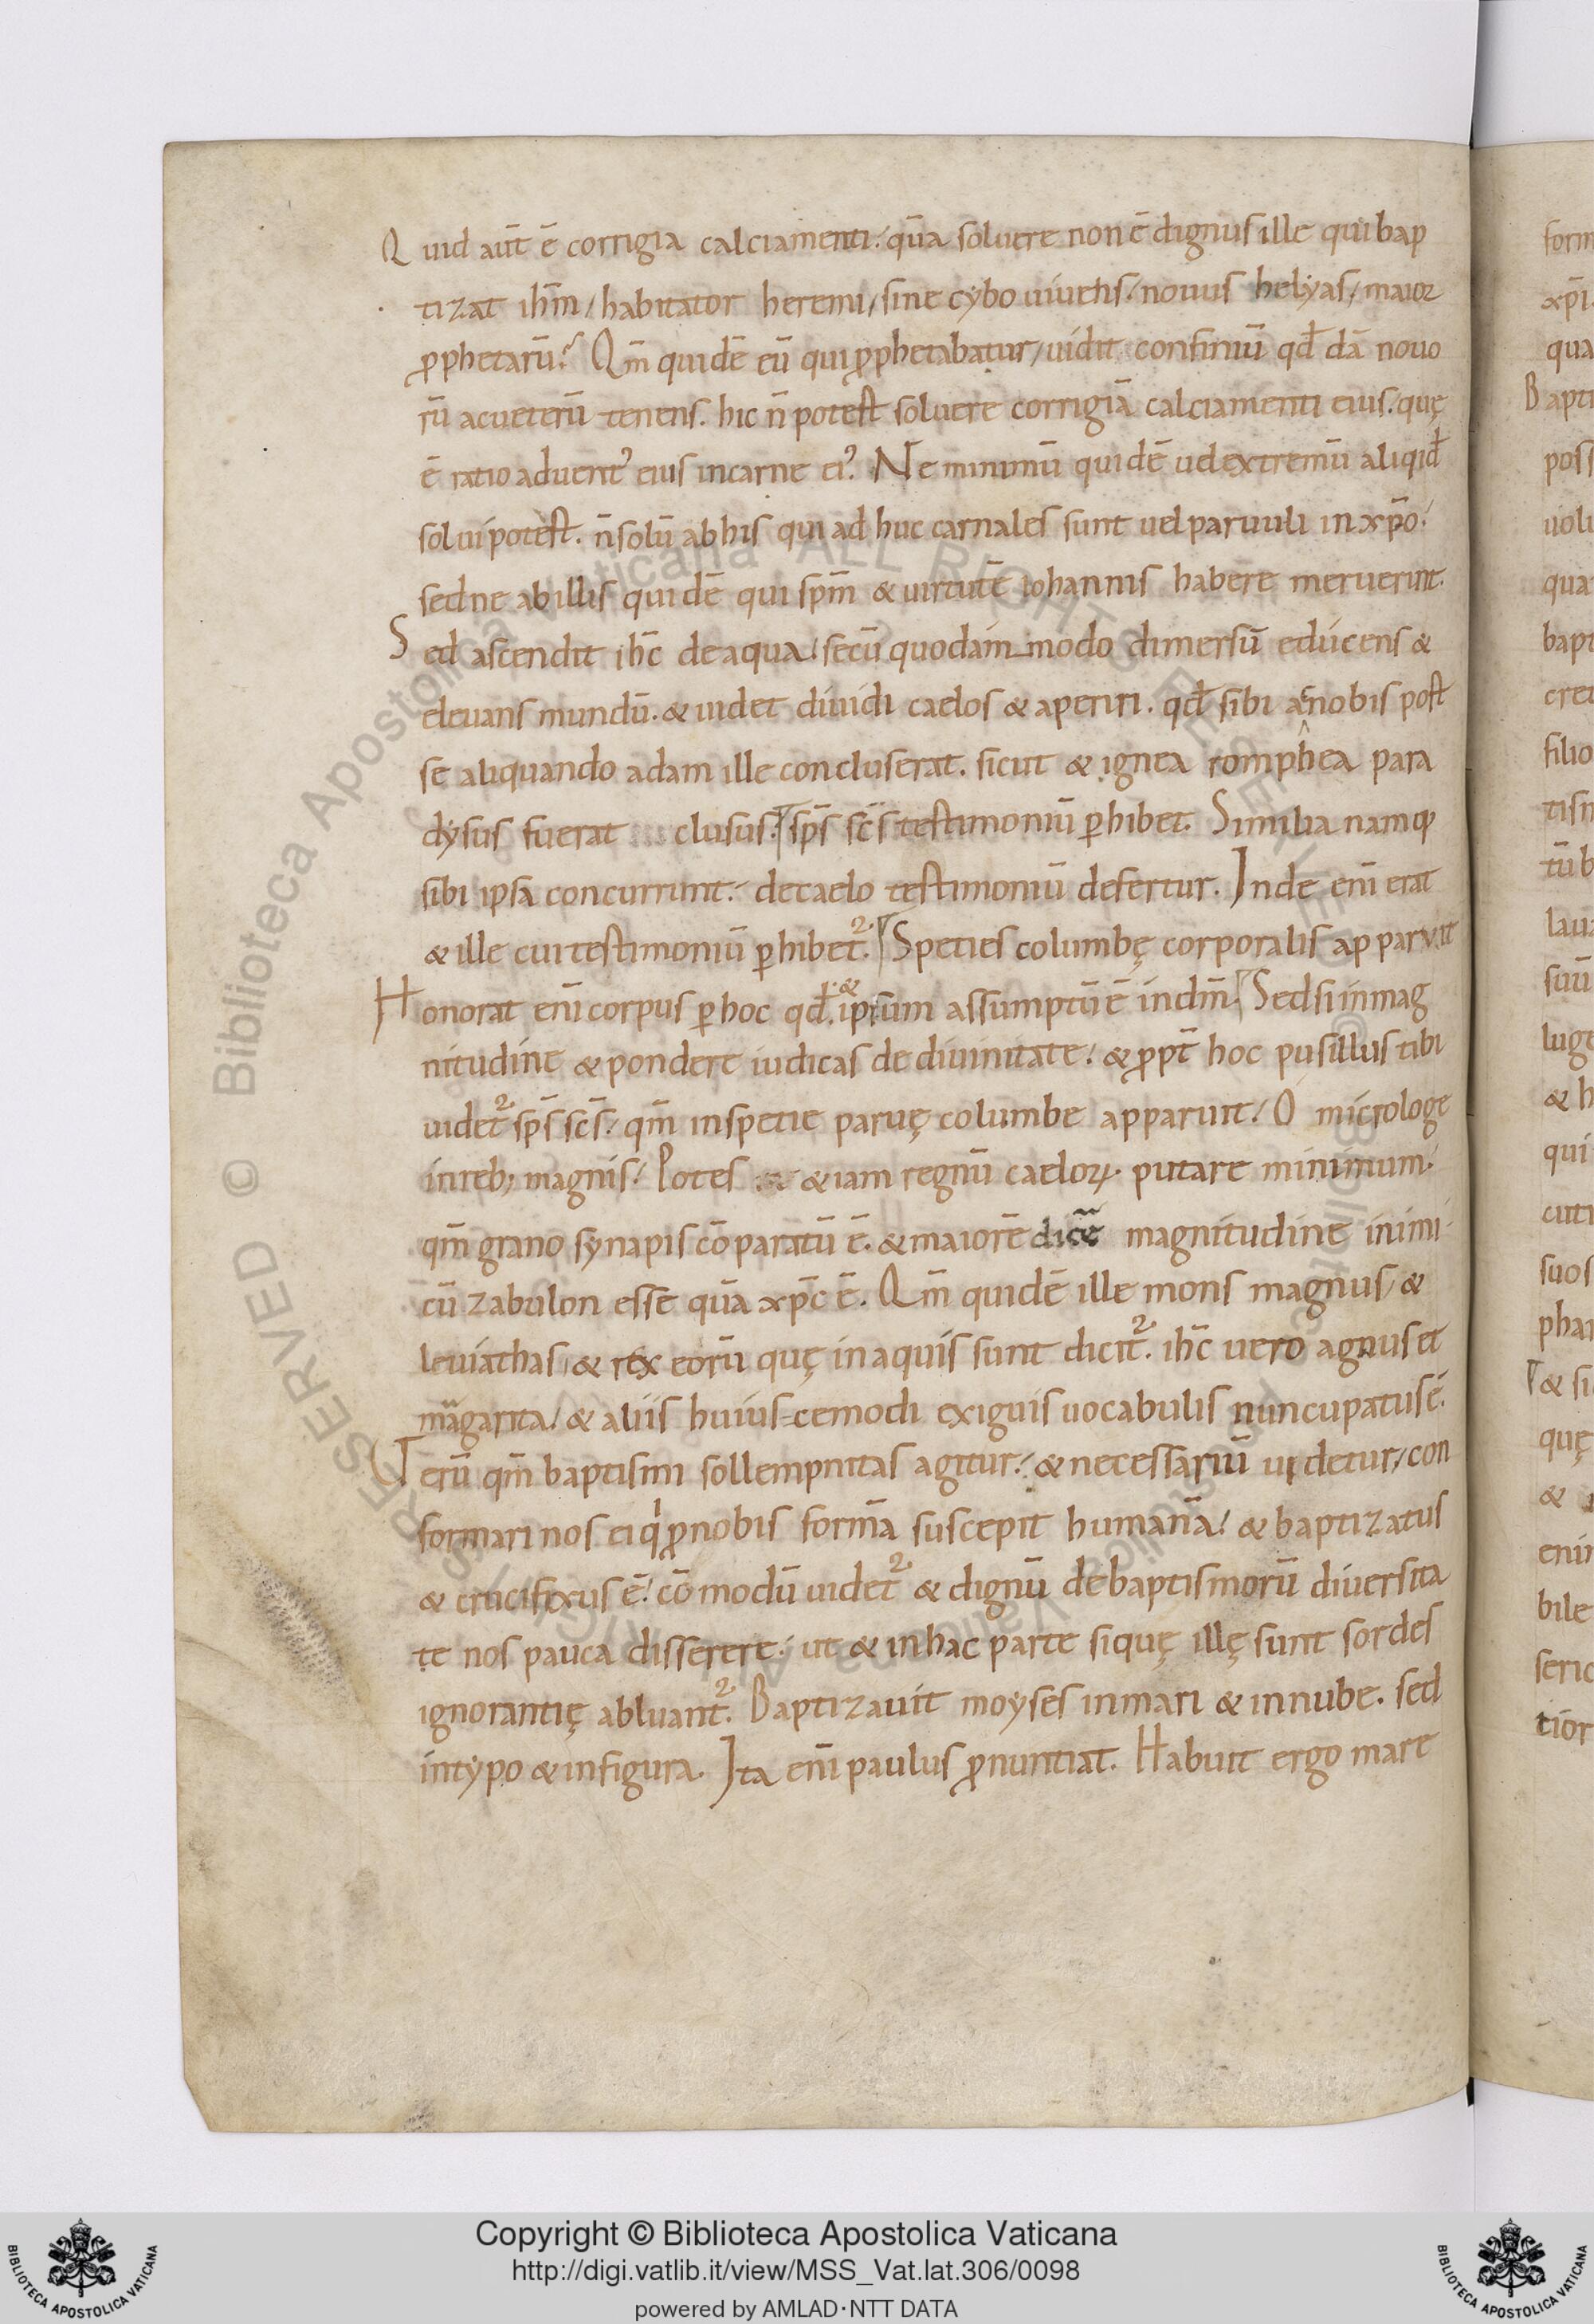 Quid aut̄ ē corrigia calciamenti. quā soluere non ē dignus ille qui bap
tizat ihm̄ / habitator heremi / sine cybo uiuens. nouus helyas / maior
ꝓphetarū? Qm̄ quidē eū qui ꝓphetabatur / uidit confiniū qd̄ dā nouo
rū ac ueterū tenens. hic n̄ potest soluere corrigiā calciamenti eius. quę
ē ratio aduent᾿ eius in carne ei᾿? Ne minimū quidē uel extremū aliqid̄
solui potest. n̄ solū ab his qui ad huc carnales sunt uel paruuli in xp̄o.
sed ne ab illis quidē qui spm̄ & uirtutē iohannis habere meruerint.
Sed ascendit ihc̄ de aqua. secū quodam modo dimersū educens &
eleuans mundū. & uidet diuidi caelos & aperiri. qd̄ sibi ac nobis post
se aliquando adam ille concluserat. sicut & ignea romphea para
dysus fuerat clusus. sps̄ scs̄ testimoniū ꝑhibet. Similia namq;
sibi ipsa concurrunt. de caelo testimoniū defertur. Inde eni̅ erat
& ille cui testimoniū ꝑhibet᷑. Speties columbę corporalis apparuit
Honorat eni̅ corpus ꝑ hoc qd̄. & ipsum assumptū ē in dm̄. Sed si in mag
nitudine & pondere iudicas de diuinitate. & ꝓpt̄ hoc pusillus tibi
uidet᷑ sps̄ scs̄. qm̄ in spetie paruę columbe apparuit. O microloge
in reb; magnis. Potes &iam regnū caeloꝝ. putare minimum.
qm̄ grano synapis cōparatū ē. & maiorē dicere magnitudine inimi
cū zabulon esse quā xpc̄ ē. Qm̄ quidē ille mons magnus / &
leuiathas / & rex eorū quę in aquis sunt dicit᷑. ihc̄ uero agnus et
margarita. & aliis huius cemodi exiguis uocabulis nuncupatus ē.
Uerū qm̄ baptismi sollempnitas agitur. & necessariū uidetur / con
formari nos ei q̇ ꝓ nobis formā suscepit humanā. & baptizatus
& crucifixus ē. cōmodū uidet᷑ & dignū de baptismorū diuersita
te nos pauca disserere. ut & in hac parte si quę illę sunt sordes
ignorantię abluant᷑. Baptizauit moyses in mari & in nube. sed
in typo & in figura. Ita eni̅ paulus ꝓnuntiat. Habuit ergo mare
form
xpi
qua
Bapti
poss
uolu
qua
bapt
cret
filio
tism
tū b
laua
suū
luge
& h
qui
cuti
suos
phar
& si
quę
&
enim
bile
seric
tior
© Biblioteca Apostolica Vaticana ALL RIGHTS RESERVED
Copyright © Biblioteca Apostolica Vaticana
http://digi.vatlib.it/view/MSS_Vat.lat.306/0098
powered by AMLAD·NTT DATA
BIBLIOTECA APOSTOLICA VATICANA
BIBLIOTECA APOSTOLICA VATICANA